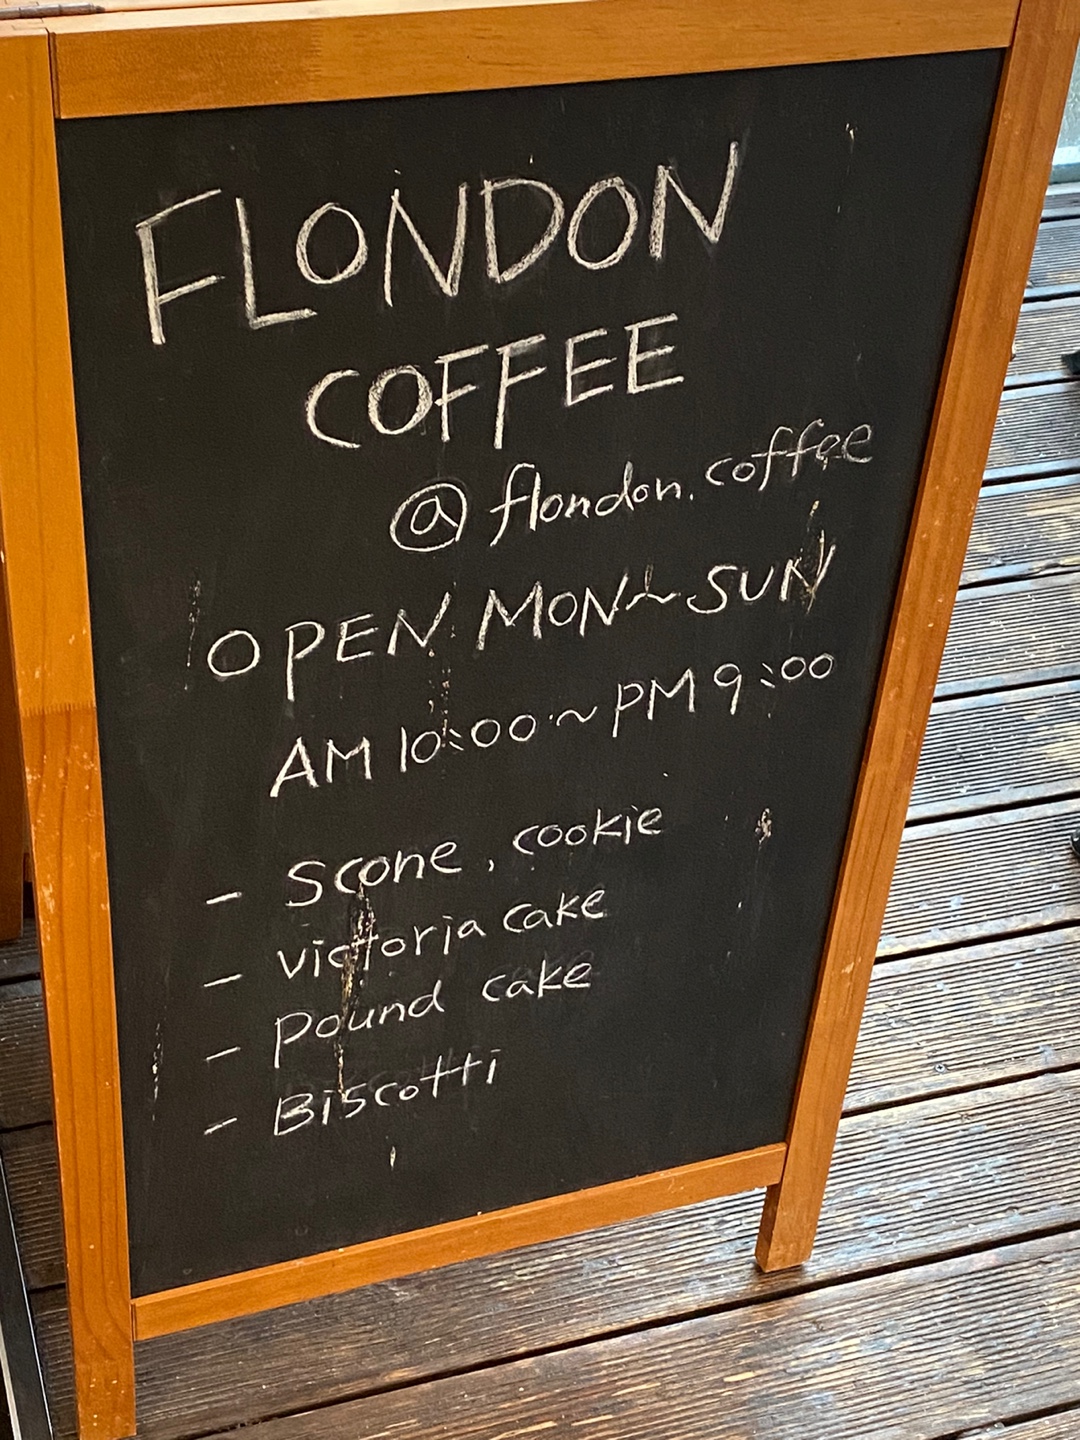 FLONDON
COFFEE
@flondon.coffee
OPEN MON~SUN
AM 10:00~PM 9:00
- Scone, cookie
- victoria cake
- Pound cake
- Biscotti